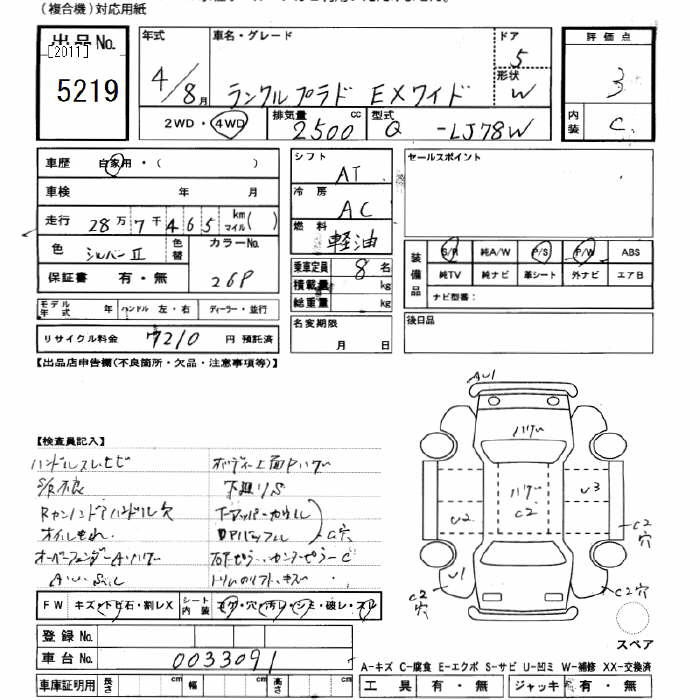 (複合機)対応用紙
出品No.
[2011]
5219
年式
4/8月
車名・グレード
ランクルプラド EXワイド
ドア
5
形状
W
2WD・4WD
排気量
2500
cc
型式
Q
-LJ78W
評価点
3
内装
C
車歴 自家用・( )
車検 年 月
走行 28万7千465 km マイル( )
色 シルバーII
色替
カラーNo.
26P
保証書 有・無
モデル年式 年 ハンドル 左・右 ディーラー・並行
リサイクル料金 7210 円 預託済
シフト
AT
冷房
AC
燃料
軽油
乗車定員 8 名
積載量 kg
総重量 kg
名変期限
月 日
セールスポイント
装備品
S/R 純A/W P/S P/W ABS
純TV 純ナビ 革シート 外ナビ エアB
ナビ型番:
後日品
【出品店申告欄(不良箇所・欠品・注意事項等)】
【検査員記入】
ハンドルスレヒビ
ボディー上面Pハゲ
S/R不良
下廻りS
オイルもれ
C穴
オーバーフェンダーAハゲ
AU1
ハゲ
ハゲ
C2
U2
U3
U1
C2
穴
C2
穴
C2
穴
スペア
FW キズ・トビ石・割レX
シート内装 コゲ・穴・汚レ・シミ・破レ・スレ
登録No.
車台No. 0033091
車庫証明用 長さ cm 幅 cm 高さ cm
A-キズ C-腐食 E-エクボ S-サビ U-凹ミ W-補修 XX-交換済
工具 有・無 ジャッキ 有・無